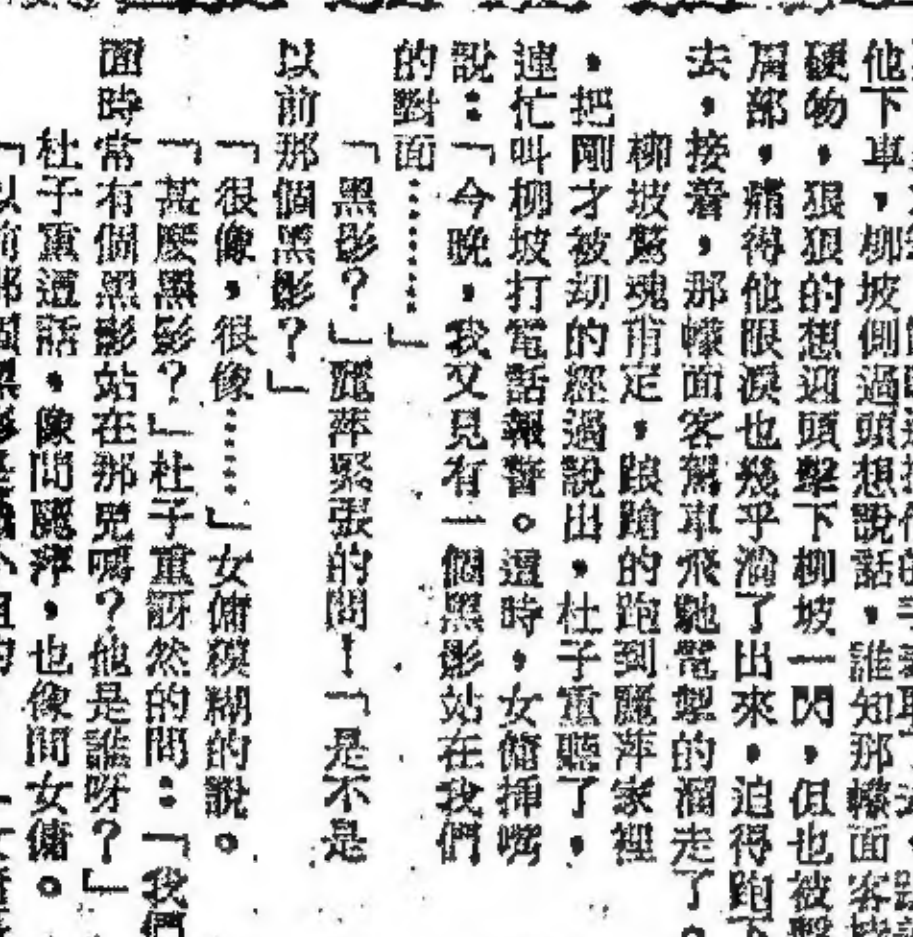 他下車，柳坡側過頭想說話，誰知那幪面客
硬物，狠狠的想迎頭擊下柳坡一閃，但也被擊
肩部，痛得他眼淚也幾乎淌了出來，迫得跑下
去，接着，那幪面客駕車飛馳電掣的溜走了。
柳坡驚魂甫定，踉蹌的跑到麗萍家裡
，把剛才被刧的經過說出，杜子重聽了，
連忙叫柳坡打電話報警。這時，女傭揷嘴
說：「今晚，我又見有一個黑影站在我們
的對面………」
「黑影？」麗萍緊張的問！「是不是
以前那個黑影？」
「很像，很像……」女傭糢糊的說。
「甚麼黑影？」杜子重訝然的問：「我們
面時常有個黑影站在那兒嗎？他是誰呀？」
杜子重這話，像問麗萍，也像問女傭。
「以前那個黑影是